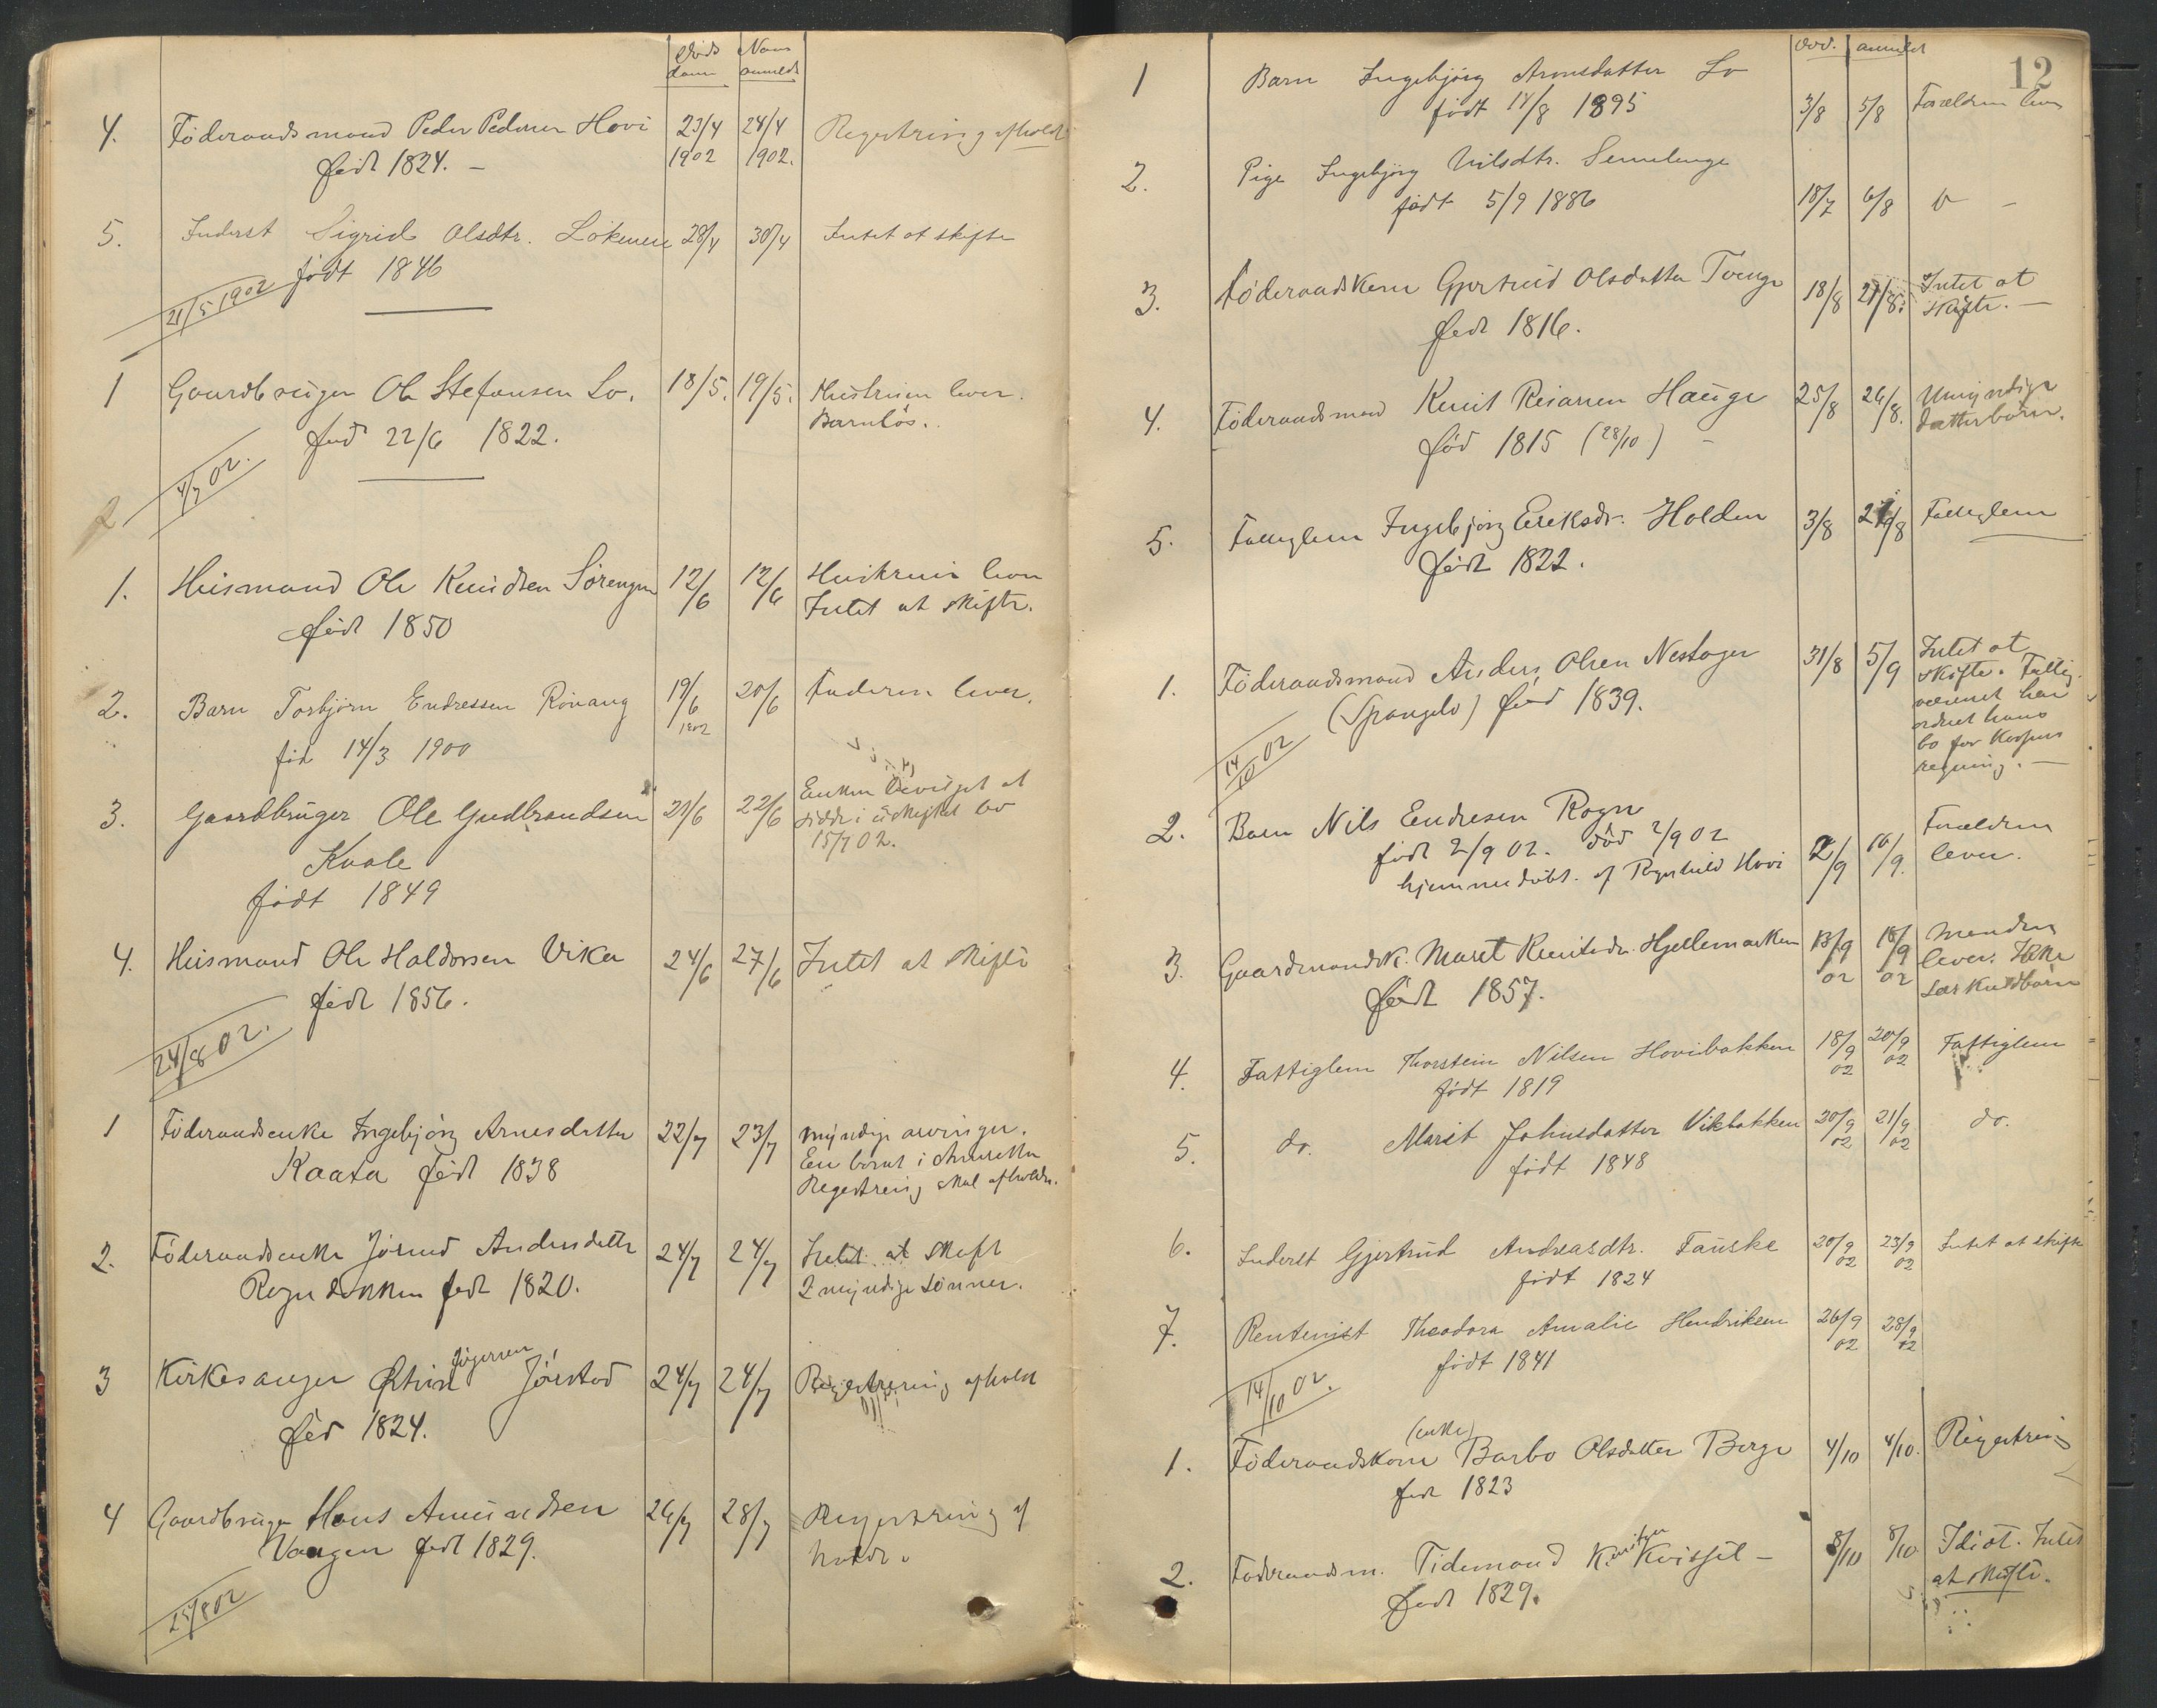 Döds
datum
Naar
anmeldt
4. Föderaadsmand Peder Pedersen Hovi 23/4 24/4 Registrering afholdt
født 1824. – 1902 1902.
5. Inderst Sigrid Olsdtr. Lökmoen 28/4 30/4 Intet at skifte
født 1846
21/5 1902
1 Gaardbruger Ole Stefansen Lo. 18/5. 19/5. Hustruen lever.
Barnløs.
fød 22/6 1822.
4/7 02.
2
1. Husmand Ole Knudsen Sörengen 12/6 12/6 Hustruen lever
Intet at skifte.
født 1850
2. Barn Torbjörn Endressen Rövang 19/6 20/6 Faderen lever.
1902
fød 14/3 1900
3. Gaardbruger Ole Gudbrandsen 21/6 22/6 Enken bevilget at
sidde i uskiftet bo
15/7 02.
Kvale
født 1849
4. Husmand Ole Haldorsen Viken 24/6 27/6 Intet at skifte
født 1856.
24/8 02.
1 Föderaadsenke Ingebjörg Arnesdatter 22/7 23/7 myndige arvinger.
En bortr i Amerika
Kaata født 1838 Registrering skal afholdes.
2. Föderaadsenke Jörand Andersdatter 24/7 24/7 Intet at skifte
Rogndokken født 1820. 2 myndige sönner.
3 Kirkesanger Østen Jögersen Jörstad 24/7 24/7 Registrering afholdt
fød 1824.
4 Gaardbruger Hans Amundsen 26/7 28/7 Registrering af
Vangen født 1829. holdt.
25/8 02
12
død. anmeldt
1 Barn Ingebjörg Arnesdatter Lo
født 14/8 1895 3/8 5/8 Forældrene lever
2. Pige Ingebjörg Nilsdtr. Semeleng
født 5/9 1886 18/7 6/8 –
3. Föderaadskone Gjertrud Olsdatter Tvenge 18/8 21/8. Intet at
skifte. –
født 1816.
4. Föderaadsmand Knut Reiarsen Hauge 25/8 26/8. Umyndige
datterbørn.
fød 1815 (28/10) –
5. Fattiglem Ingebjörg Eriksdr. Holden 3/8 29/8 Fattiglem
født 1822.
1. Föderaadsmand Anders Olsen Nestager 31/8 5/9 Intet at
skifte. Fattig-
(Spangelo) fød 1839. væsenet har
ordnet hans
14/10 02 bo for Korpus
regning. –
2. Barn Nils Endresen Rogn Forældrene
født 2/9 02. död 2/9 02 2/9 10/9. lever.
hjemmedøbt af Ragnhild Hovi
3. Gaardmandsk. Marit Knutsdr. Hjellemarken 13/9 18/9 Manden
lever. Ikke
født 1857. 02 02 Særkuldbørn
4. Fattiglem Thorstein Nilsen Hovibakken 18/9 20/9 Fattiglem
født 1819 02 02
5. do. Marit Johnsdatter Vikbakken 20/9 21/9 do.
født 1848 02 02
6. Inderst Gjertrud Andreasdtr. Fauske 20/9 23/9 Intet at skifte
født 1824 02 02
7. Rentenist Theodora Amalie Hendriksen 26/9 28/9
født 1841 02 02
14/10 02.
(enke)
1. Föderaadskone Barbo Olsdatter Berge 4/10 4/10. Registrering
født 1823
2. Föderaadsm. Tidemand Knutsen Kvissel – 8/10 8/10 Idiot. Intet
født 1829. at skifte.